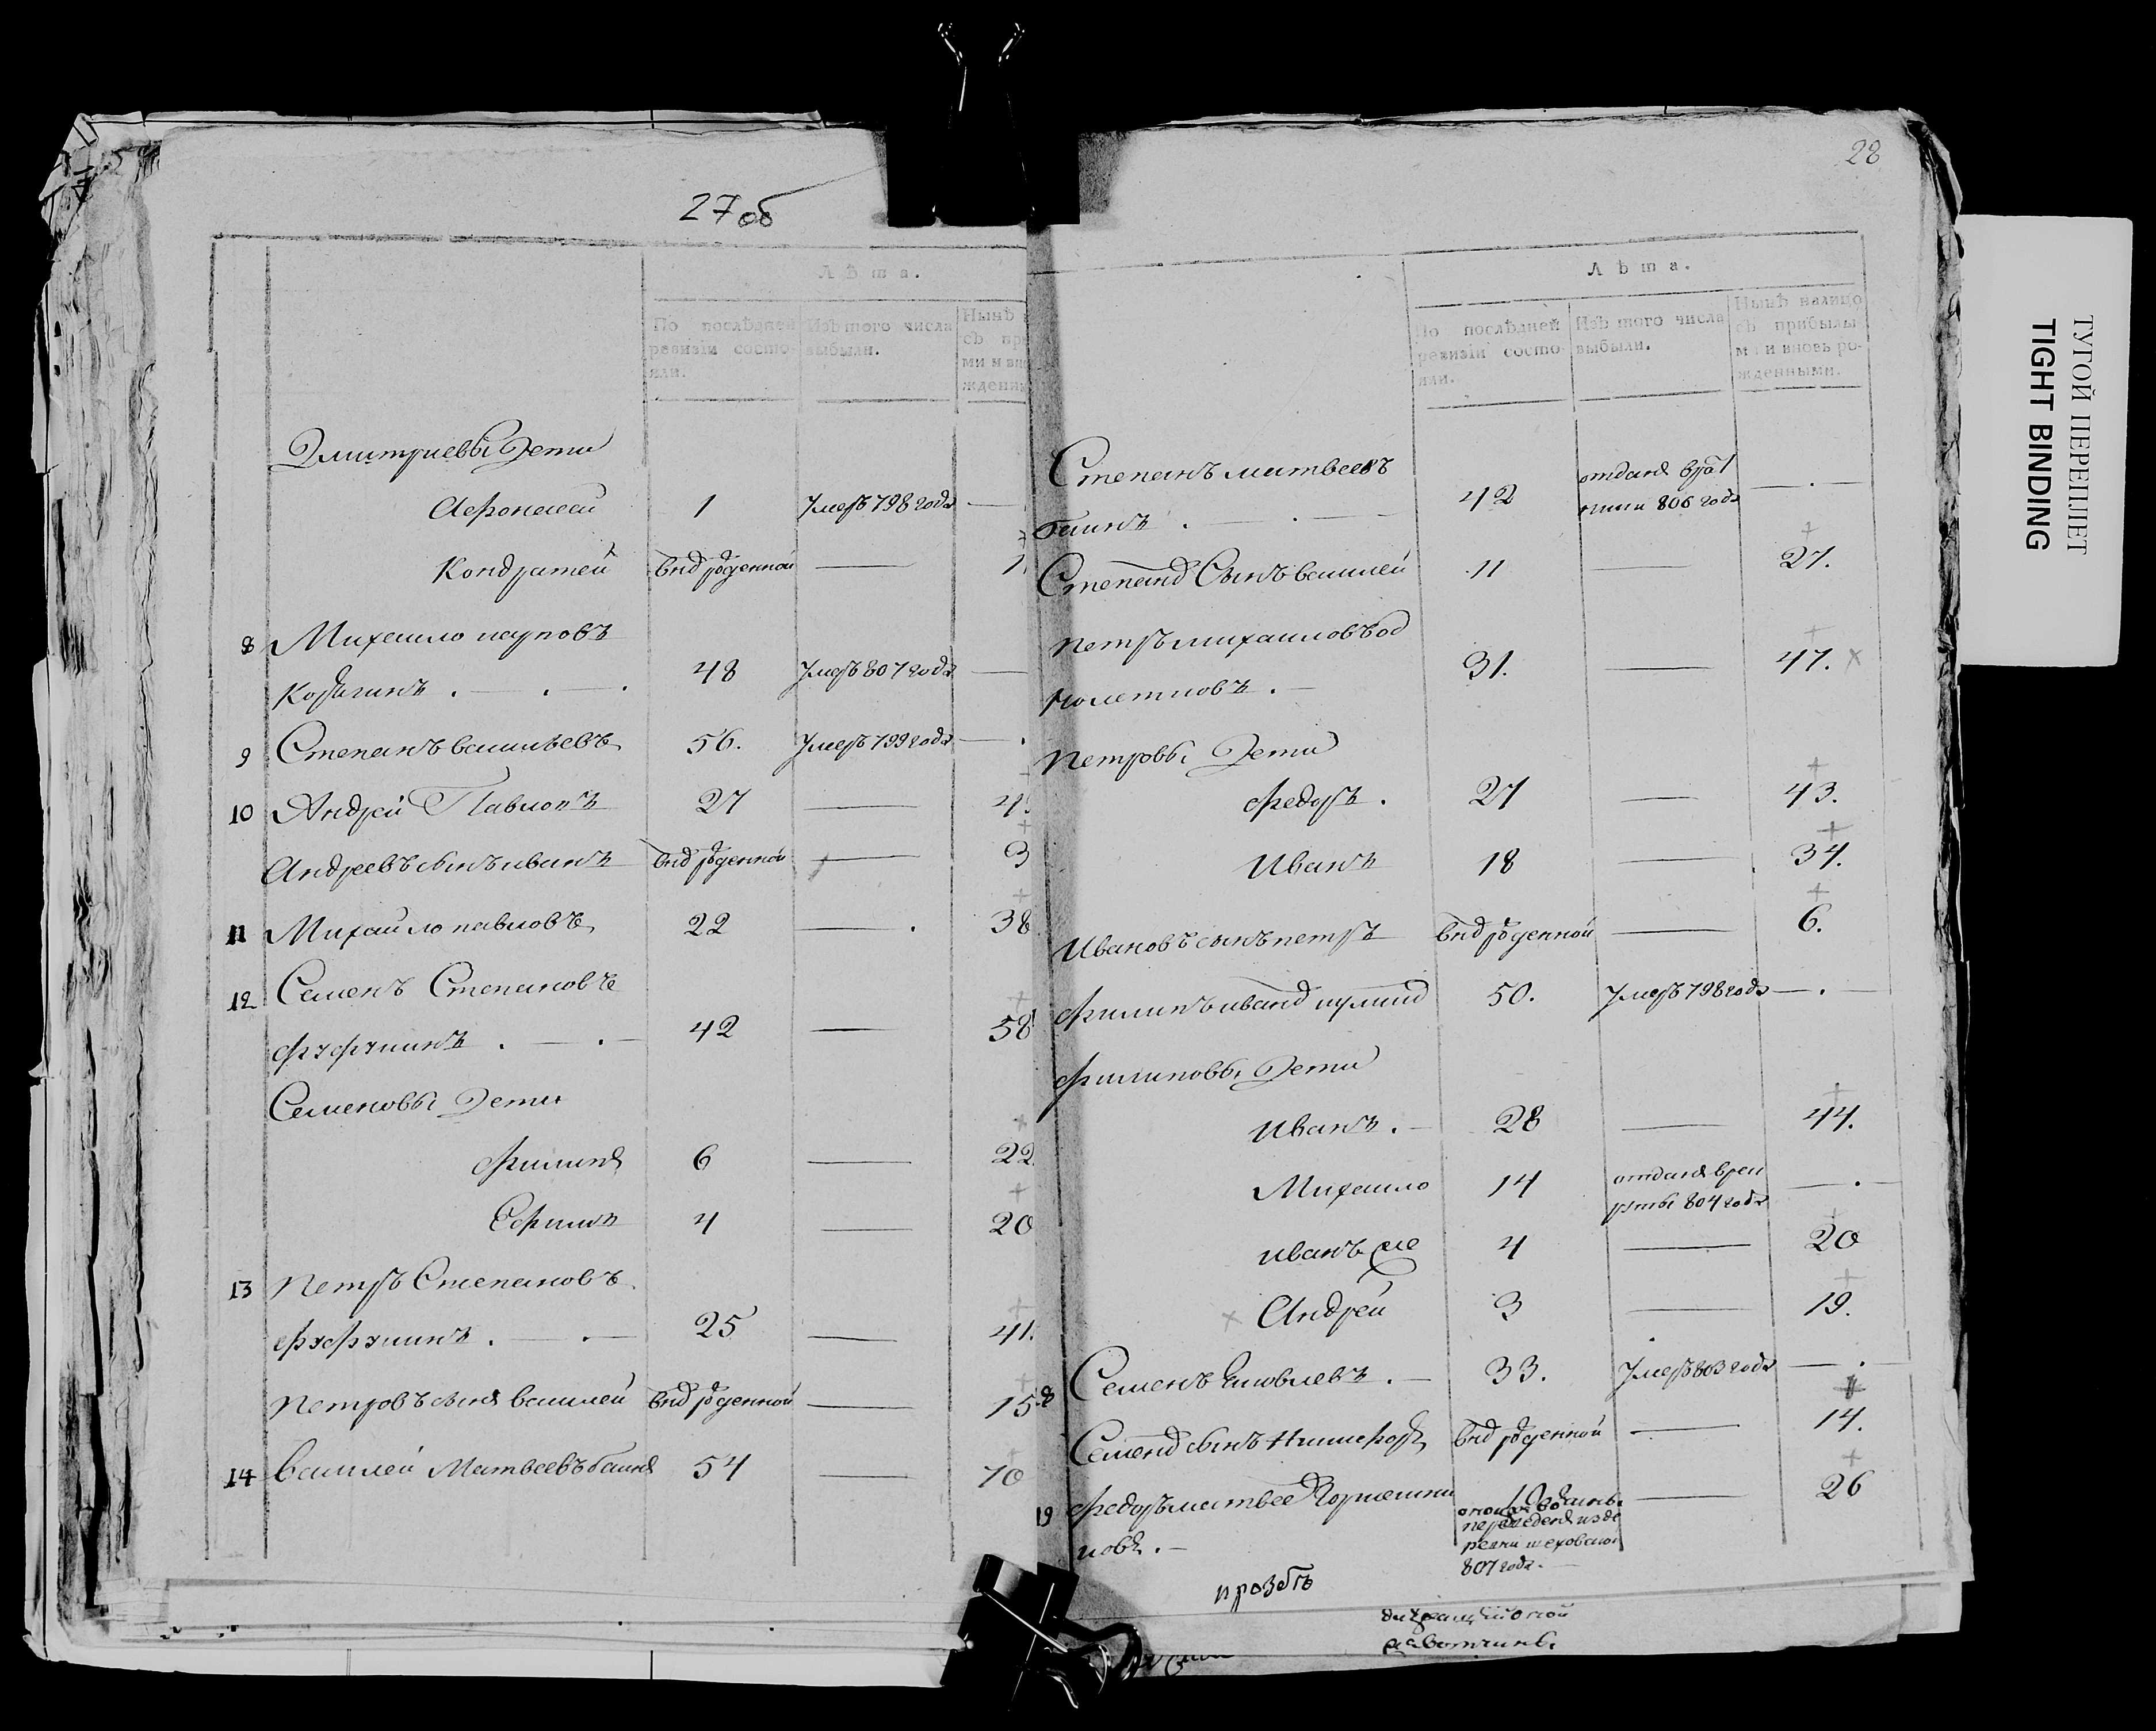 27 об
Лѣта.
По послѣдней ревизіи состояли.
Изъ того числа выбыли.
Нынѣ
съ пр
ми и вн
жденны
Дмитриевы Дети
Афонасей 1 умеръ 798 года —
Кондратей вновь рожденной — 1
8 Михаило
48 умеръ 807 года —
9 Степанъ васильевъ 56. умеръ 799 года —
10 Андрей Павловъ 27 — 4
Андреевъ сынъ иванъ вновь рожденной — 3
11 Михаило павловъ 22 — 38
12 Семенъ Степановъ
42 — 58
Семеновы Дети
филипъ 6 — 22
Ефимъ 4 — 20
13 петръ Степановъ
25 — 41.
петровъ сынъ василей вновь рожденной — 15
14 василей Матвеевъ 54 — 70
28
Лѣта.
По послѣдней ревизіи состояли.
Изъ того числа выбыли.
Нынѣ налицо съ прибылыми и вновь рожденными.
Степанъ матвеевъ
42 отданъ 806 года —
Степановъ Сынъ василей 11 — 27.
петръ михаиловъ
31. — 47. x
петровы Дети
федоръ. 27 — 43.
Иванъ 18 — 34.
Ивановъ сынъ петръ вновь рожденной — 6.
филипъ ивановъ 50. умеръ 798 года —
филиповы Дети
иванъ. 28 — 44.
Михаило 14 отданъ в рекруты 804 года —
иванъ же 4 — 20
Андрей 3 — 19.
8 Семенъ Яковлевъ. 33. умеръ 803 года —
Семеновъ сынъ никифоръ вновь рожденной — 14.
19 федоръ матвеевъ 10 — 26
переведенъ из деревни
807 года.
ТУГОЙ ПЕРЕПЛЕТ
TIGHT BINDING